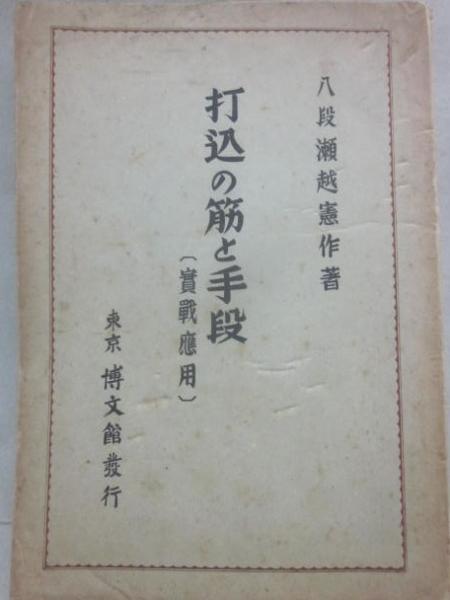 八段瀬越憲作著
打込の筋と手段
〔實戰應用〕
東京 博文館發行